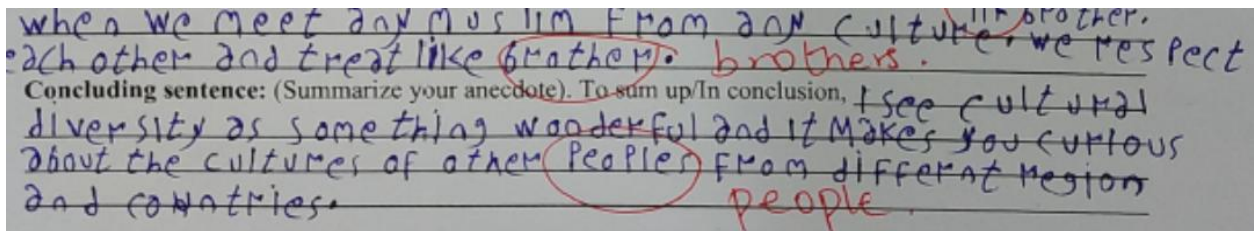 when we meet any muslim from any culture. we respect
each other and treat like brother. brothers.
Concluding sentence: (Summarize your anecdote). To sum up/In conclusion, I see cultural
diversity as something wonderful and it makes you curious
about the cultures of other peoples from different region
and countries. people.